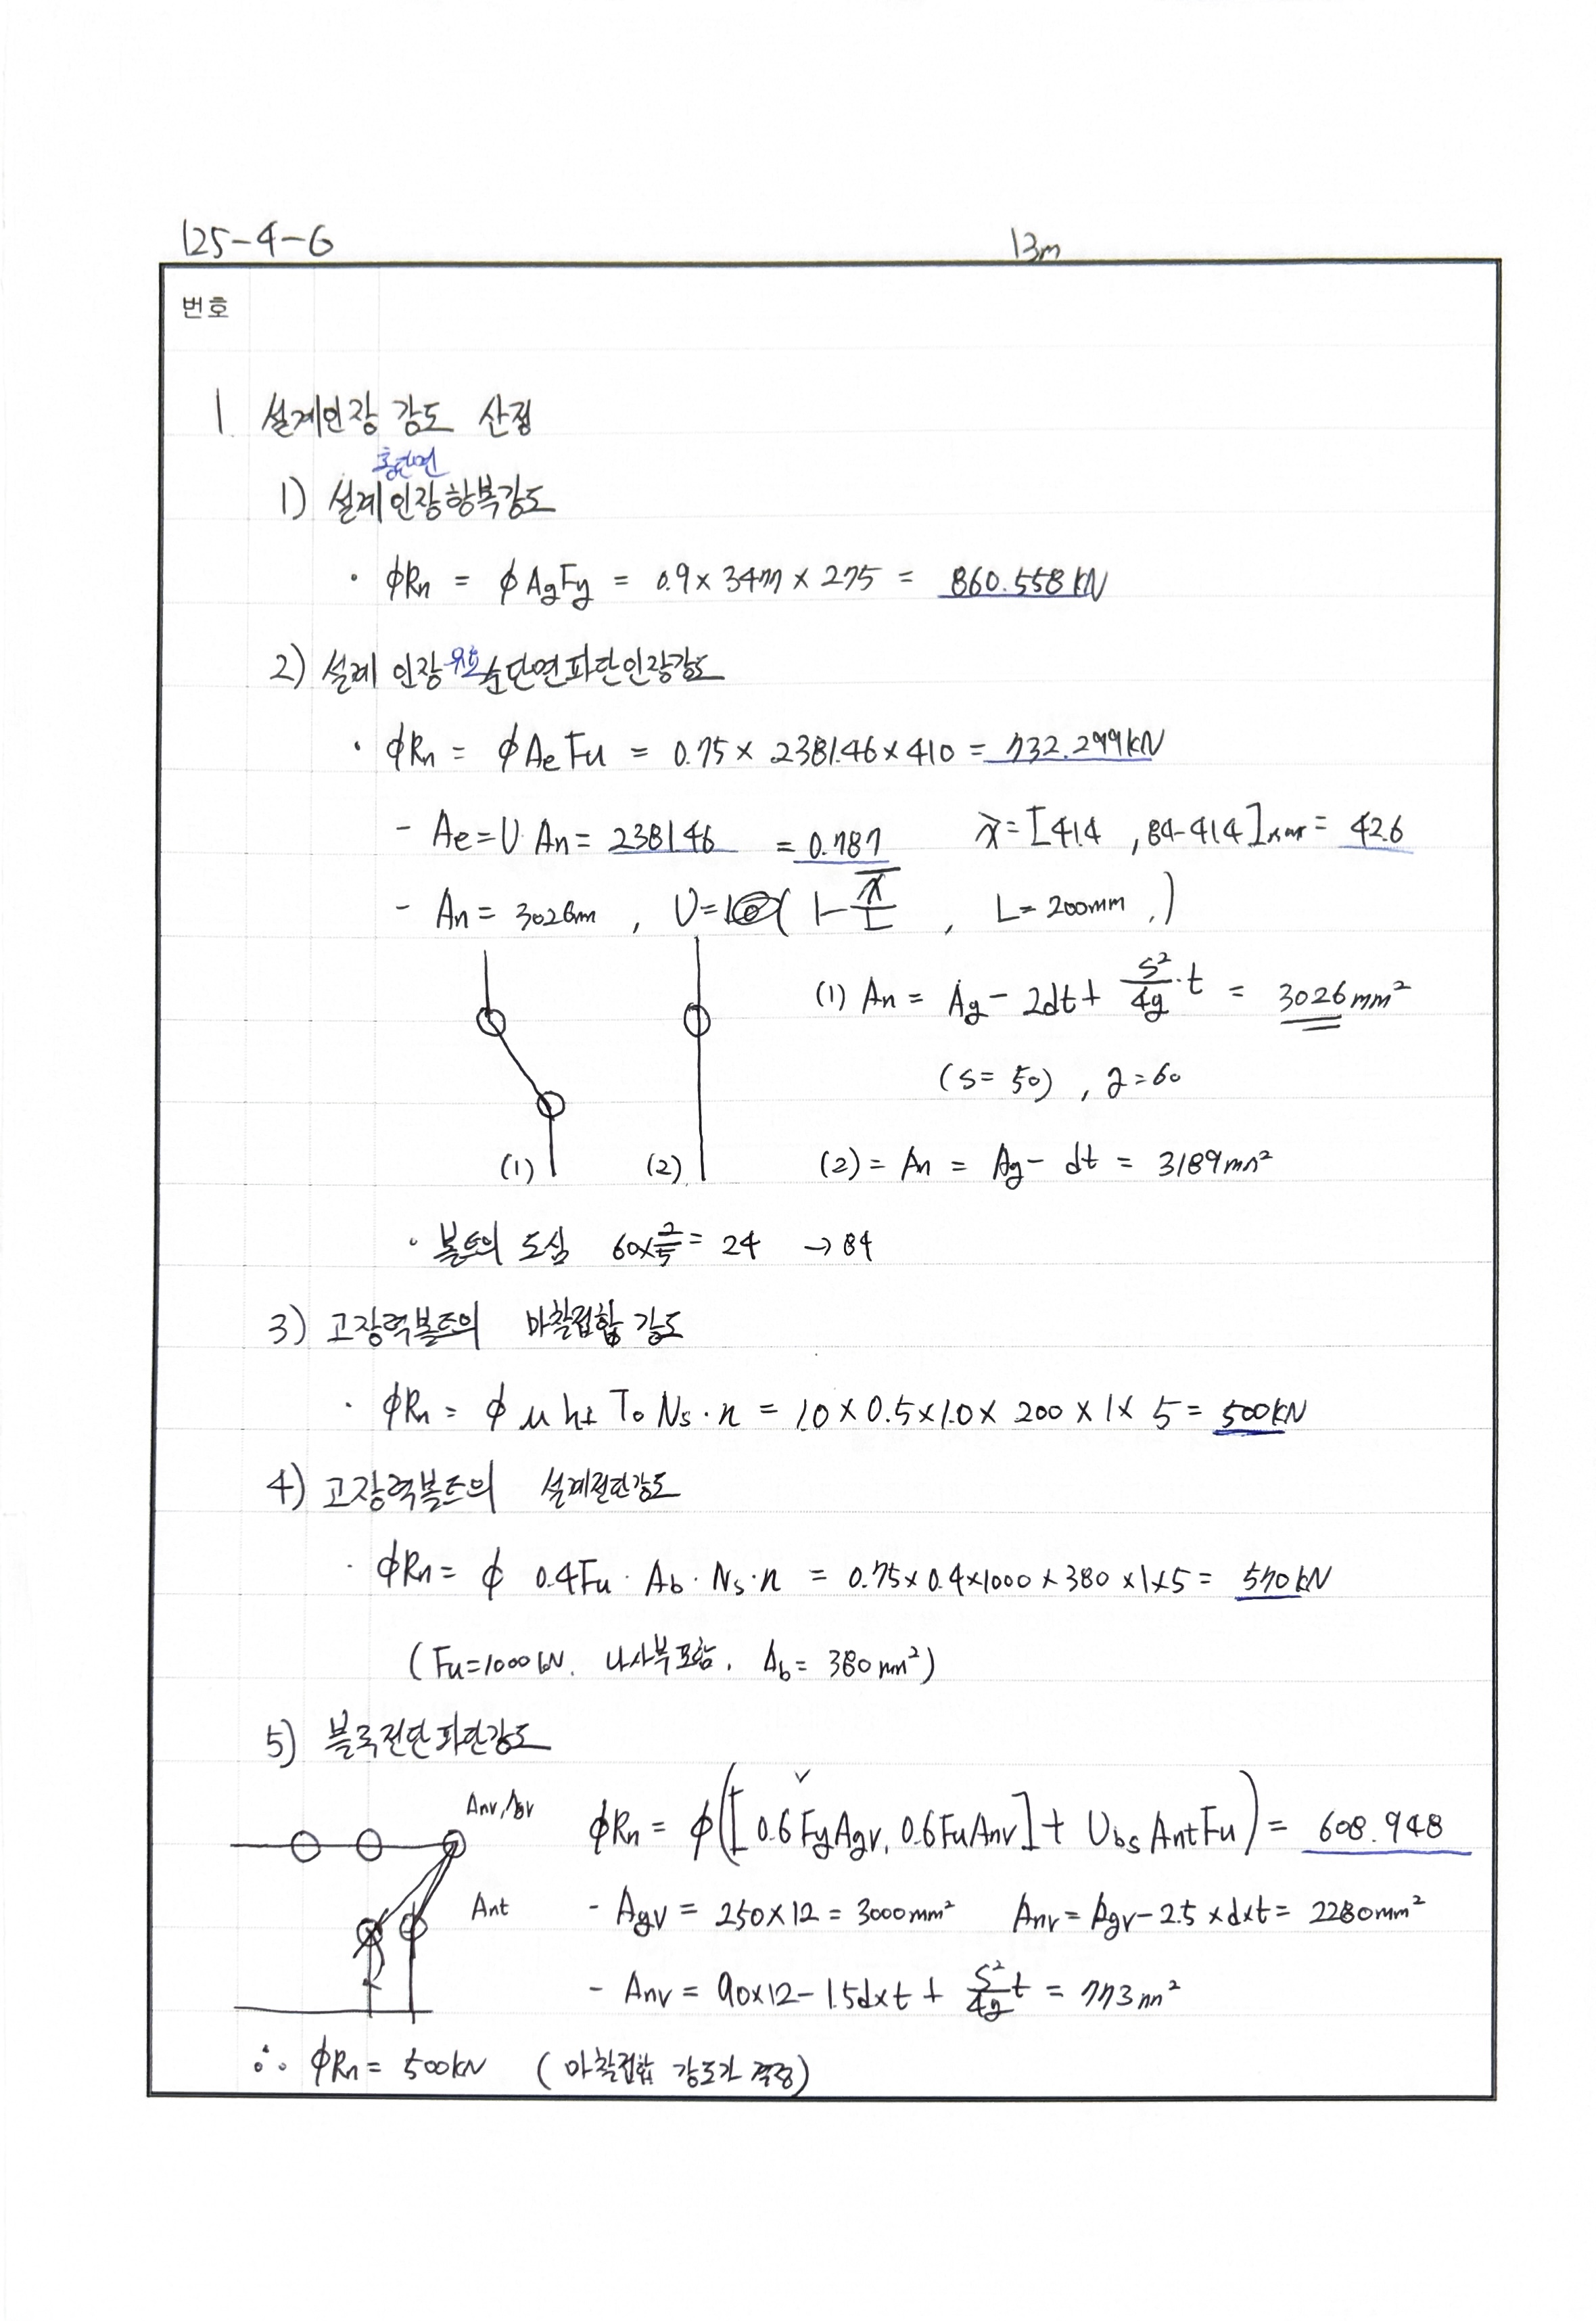 125-4-6
13m
번호
1. 설계인장 강도 산정
총단면
1) 설계인장항복강도
· ϕRn = ϕAgFy = 0.9 × 3477 × 275 = 860.558 kN
2) 설계 인장 유효 순단면파단인장강도
· ϕRn = ϕAeFu = 0.75 × 2381.46 × 410 = 732.299 kN
- Ae = U·An = 2381.46 = 0.787 x̄ = [41.4 , 84-41.4]max = 42.6
- An = 3026mm , U = ( 1 - x̄/L , L = 200mm , )
(1) An = Ag - 2dt + s²/4g · t = 3026 mm²
(s = 50) , g = 60
(1) (2) (2) = An = Ag - dt = 3189 mm²
· 볼트의 도심 60 × 2/5 = 24 → 84
3) 고장력볼트의 마찰접합 강도
· ϕRn = ϕ μ hf To Ns · n = 1.0 × 0.5 × 1.0 × 200 × 1 × 5 = 500 kN
4) 고장력볼트의 설계전단강도
· ϕRn = ϕ 0.4Fu · Ab · Ns · n = 0.75 × 0.4 × 1000 × 380 × 1 × 5 = 570 kN
(Fu = 1000 kN, 나사부포함, Ab = 380 mm²)
5) 블록전단파단강도
Anv, Agv
ϕRn = ϕ([0.6FyAgv, 0.6FuAnv] + UbsAntFu) = 608.948
Ant
- Agv = 250 × 12 = 3000 mm² Anv = Agv - 2.5 × d × t = 2280 mm²
- Anv = 90 × 12 - 1.5d × t + s²/4g t = 773 mm²
∴ ϕRn = 500 kN (마찰접합 강도가 결정)